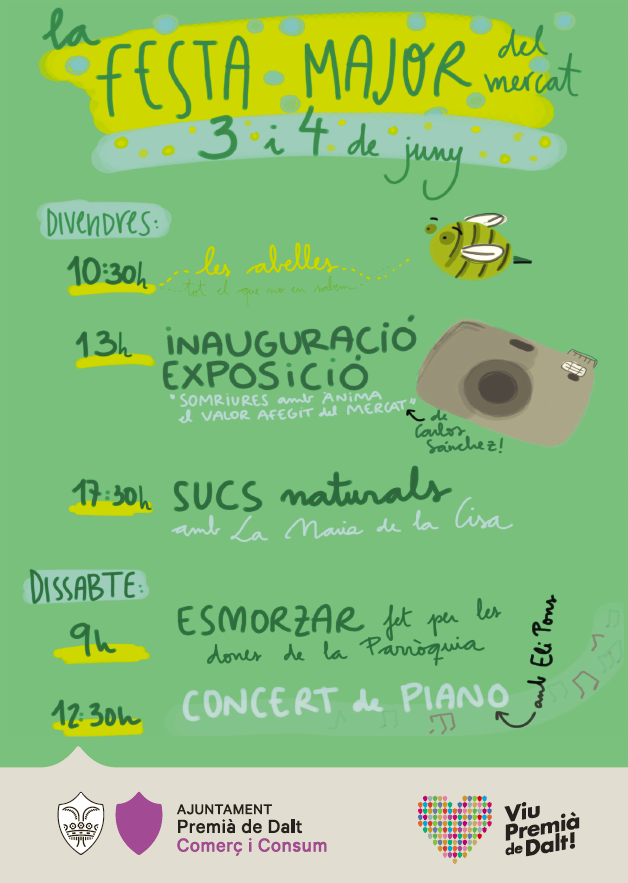 la FESTA MAJOR del mercat
3 i 4 de juny
DIVENDRES:
10:30h les abelles
tot el que no en sabem
13h INAUGURACIÓ
EXPOSICIÓ
"SOMRIURES amb ÀNIMA
el VALOR AFEGIT del MERCAT"
de
Carlos
Sánchez!
17:30h SUCS naturals
amb La Maria de la Cisa
DISSABTE:
9h ESMORZAR fet per les
dones de la Parròquia
12:30h CONCERT de PIANO
amb Eli Pons
AJUNTAMENT
Premià de Dalt
Comerç i Consum
Viu
Premià
de Dalt!